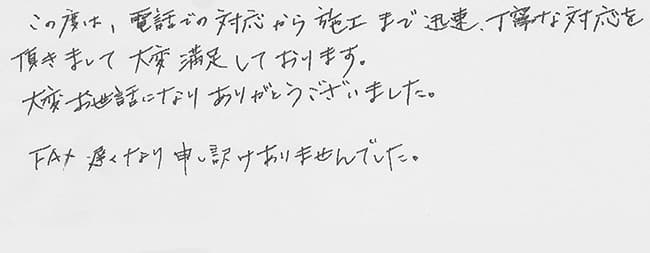 この度は、電話での対応から施工まで迅速、丁寧な対応を
頂きまして大変満足しております。
大変お世話になりありがとうございました。
FAX遅くなり申し訳けありませんでした。